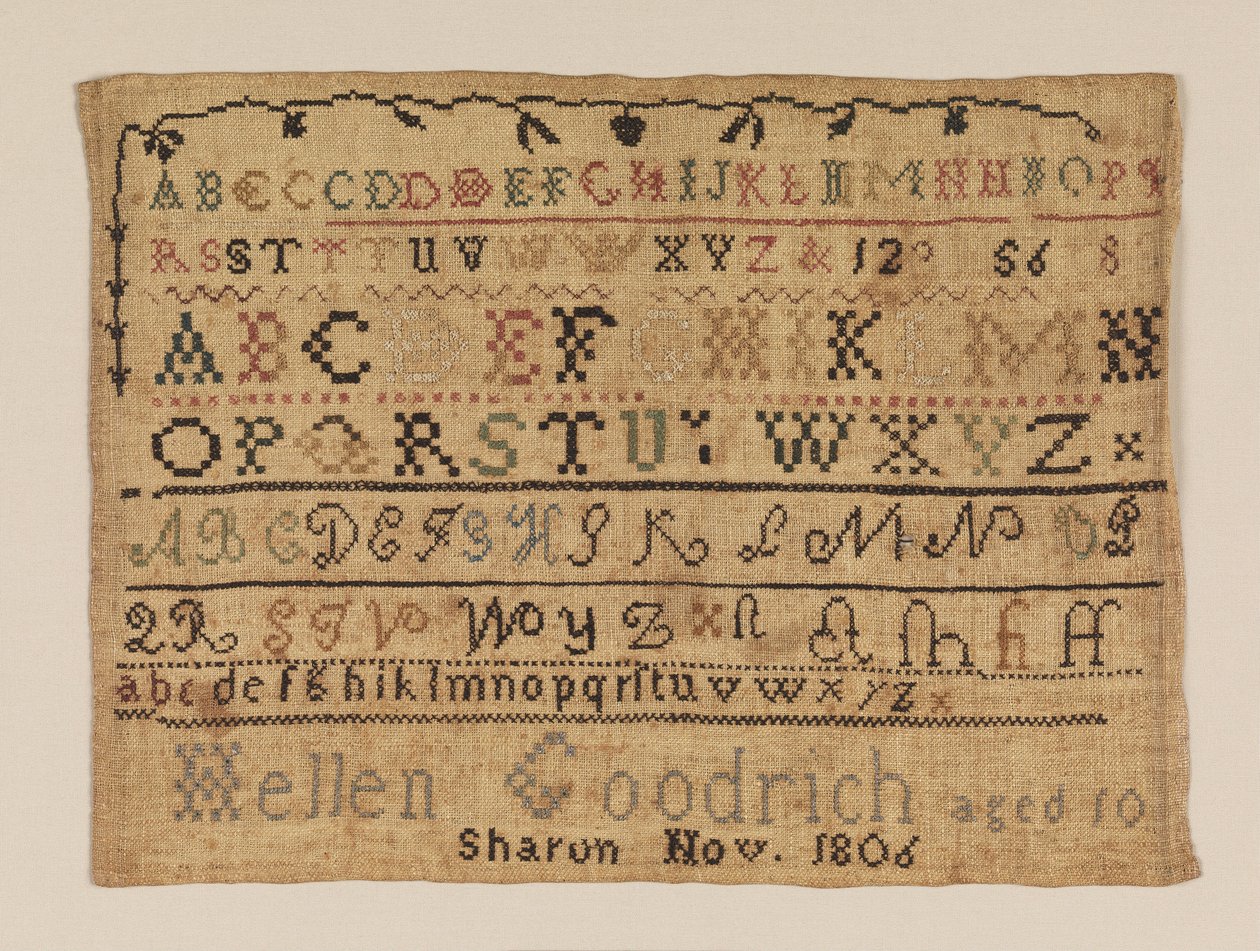 A B C C C D D D E F G H I J K L M M N N I O P Q
R S S T T T U V W W X V Z & 1 2 0 5 6 8
A B C D E F G H I K L M N
O P Q R S T U V W X Y Z x
A B C D E F G H I K L M N O P
Q R S T V W o y Z x ct sh fi ff
a b c d e f g h i k l m n o p q r ſ t u v w x y z x
Hellen Goodrich aged 10
Sharon Nov. 1806